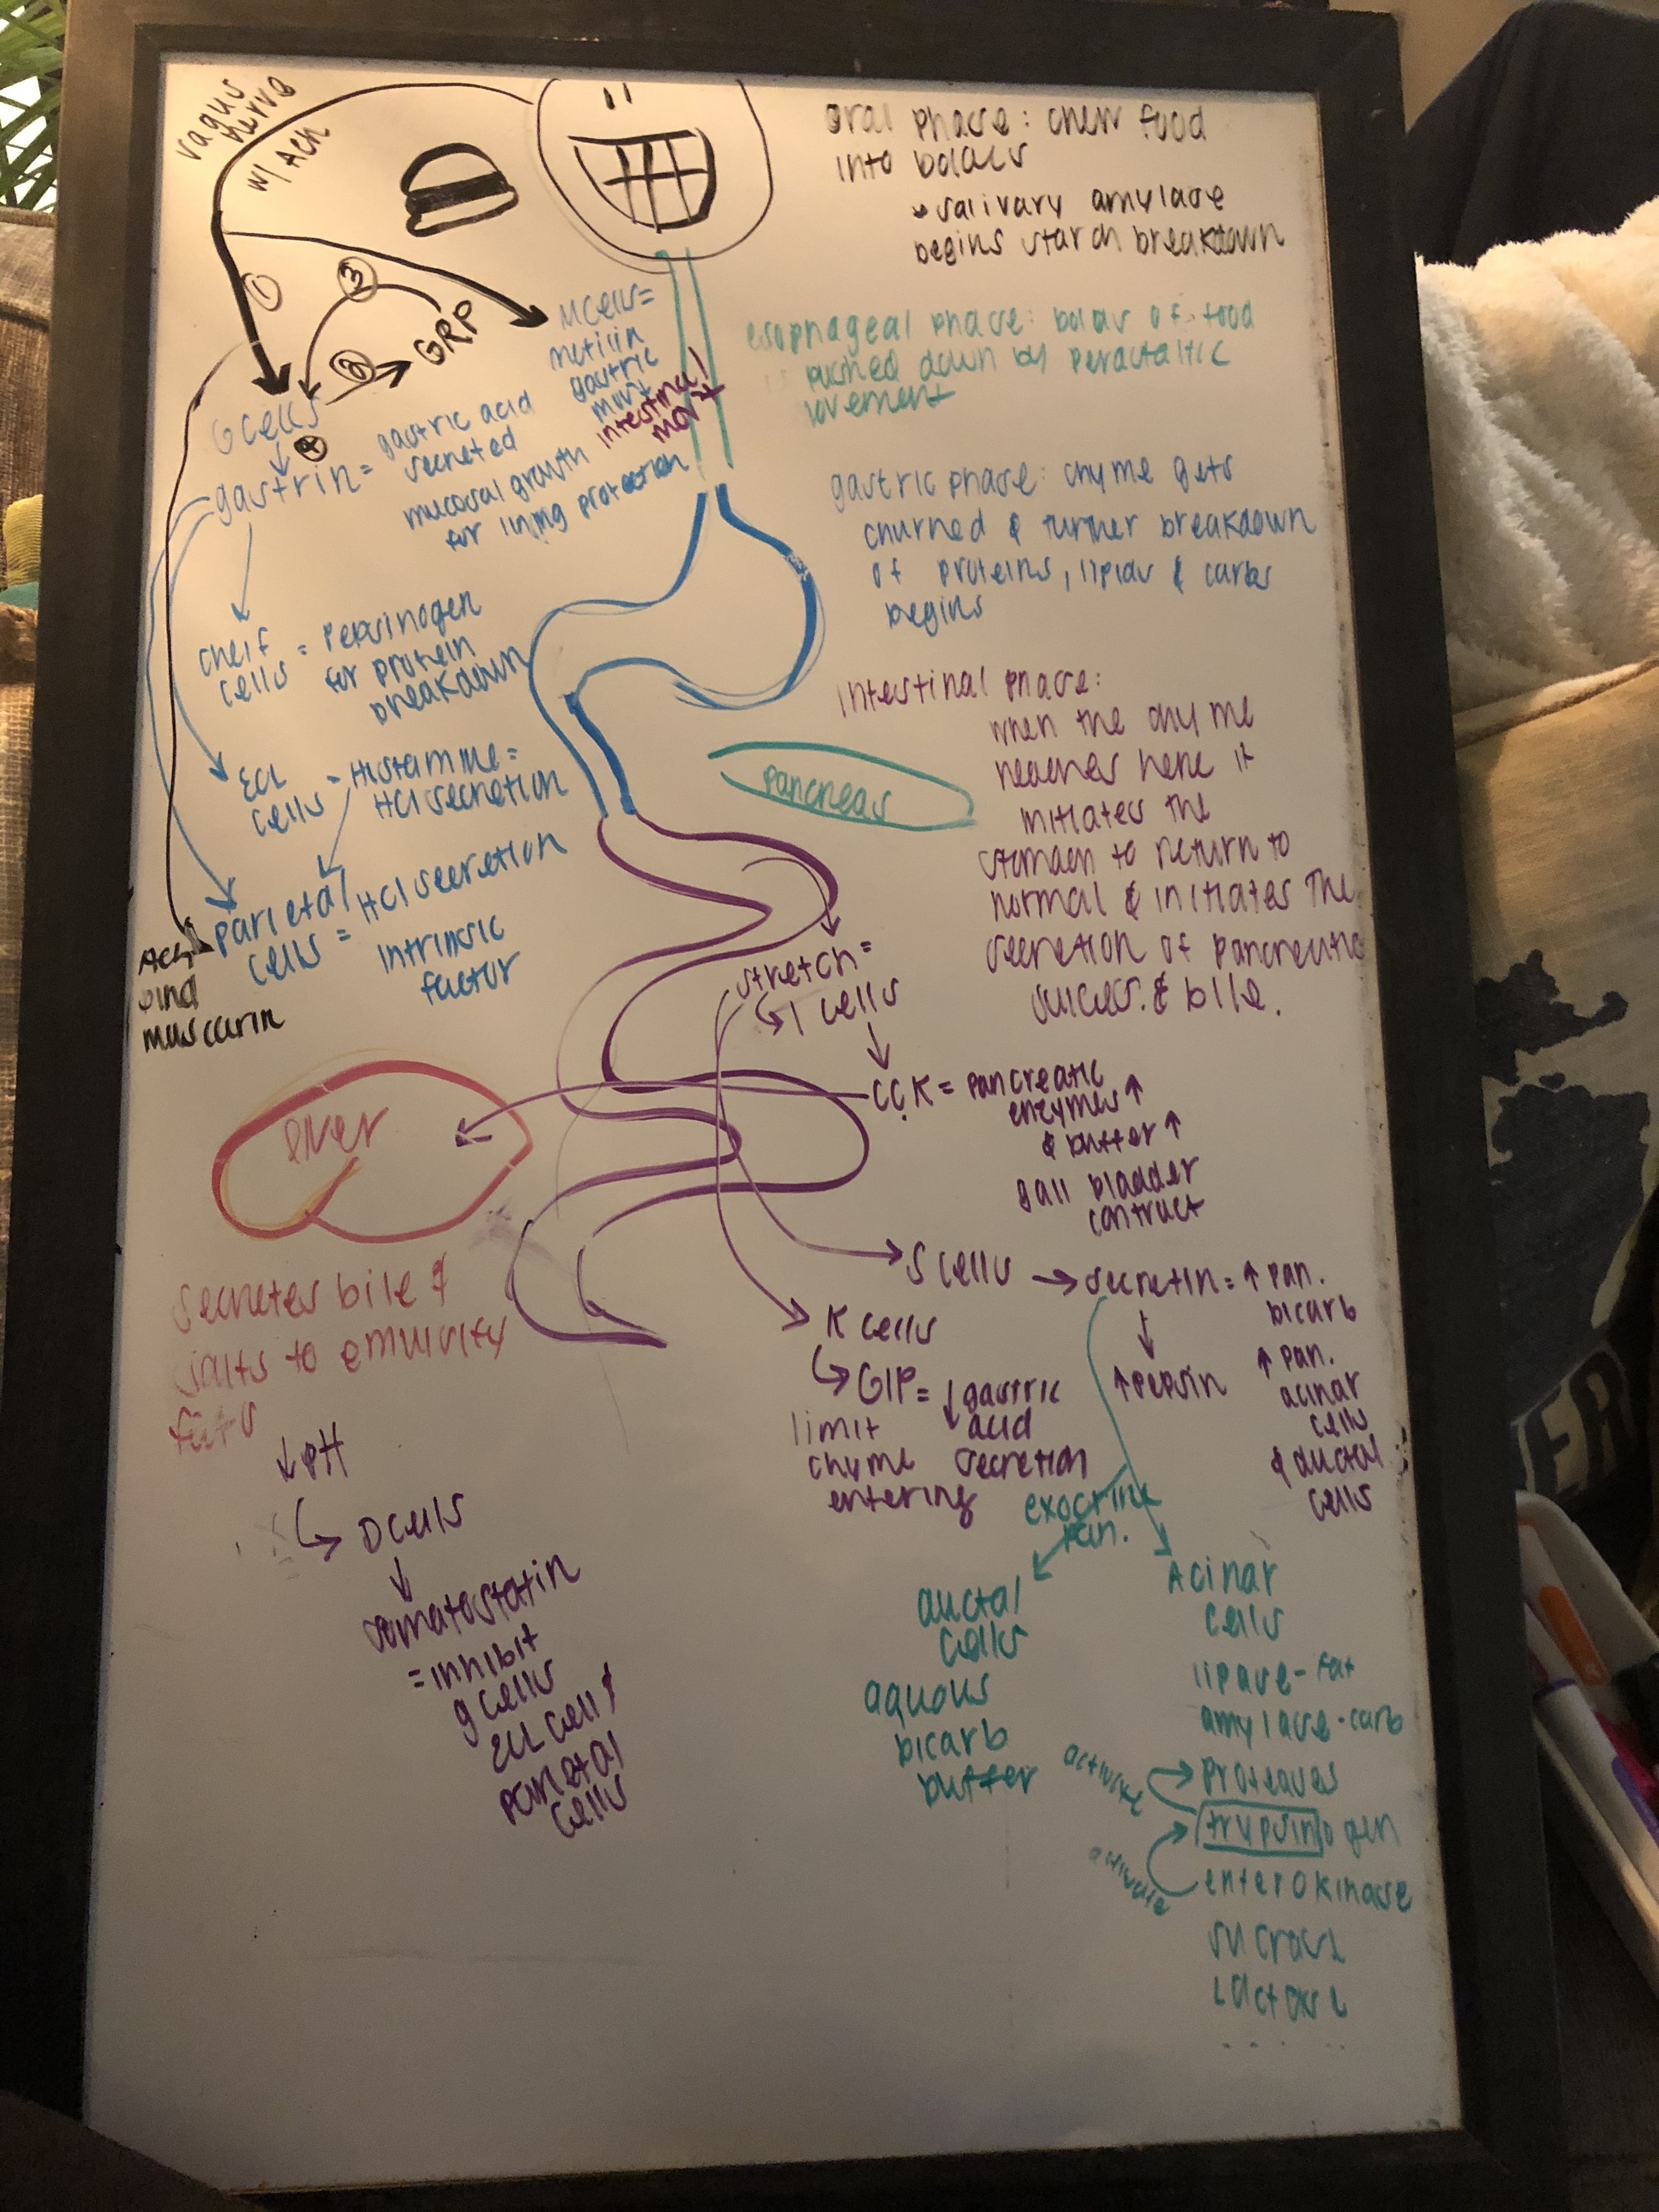 vagus
nerve
w/ ACh
oral phase: chew food
into bolus
salivary amylase
begins starch breakdown
1
3
2
GRP
G cells
4
gastrin = gastric acid
secreted
mucosal growth
for lining protection
M cells =
motilin
gastric
mov't
intestinal
mov't
esophageal phase: bolus of food
pushed down by peractaltic
movement
gastric phase: chyme gets
churned & further breakdown
of proteins, lipids & carbs
begins
cheif
cells = pepsinogen
for protein
breakdown
ECL
cells - Histamine =
HCl secretion
parietal
cells = HCl secretion
intrinsic
factor
ACh
bind
muscarin
Intestinal phase:
when the chyme
reaches here it
initiates the
stomach to return to
normal & initiates the
secretion of pancreatic
juices & bile.
pancreas
stretch =
I cells
CCK = pancreatic
enzymes ↑
& buffer ↑
gall bladder
contract
liver
secretes bile &
salts to emulsify
fats
S cells → secretin = ↑ pan.
bicarb
↑ pan.
acinar
cells
& ductal
cells
↑ pepsin
K cells
GIP = ↓ gastric
acid
secretion
limit
chyme
entering
↓ pH
D cells
somatostatin
= inhibit
g cells
ECL cells &
parietal
cells
exocrine
pan.
ductal
cells
aquous
bicarb
buffer
Acinar
cells
lipase - fat
amylase - carb
activate
proteases
trypsinogen
activate
enterokinase
sucrase
Lactase